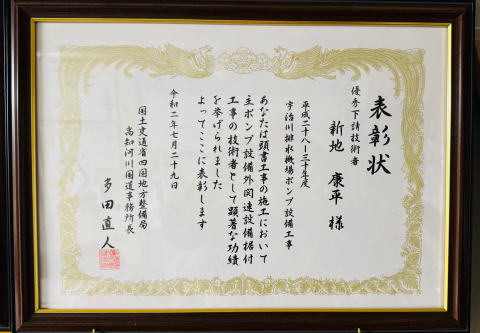 表彰状
優秀下請技術者
新地 康平 様
平成二十八~三十年度
宇治川排水機場ポンプ設備工事
あなたは頭書工事の施工において
主ポンプ設備外関連設備据付
工事の技術者として顕著な功績
を挙げられました
よってここに表彰します
令和二年七月二十九日
国土交通省四国地方整備局
高知河川国道事務所長
多田直人